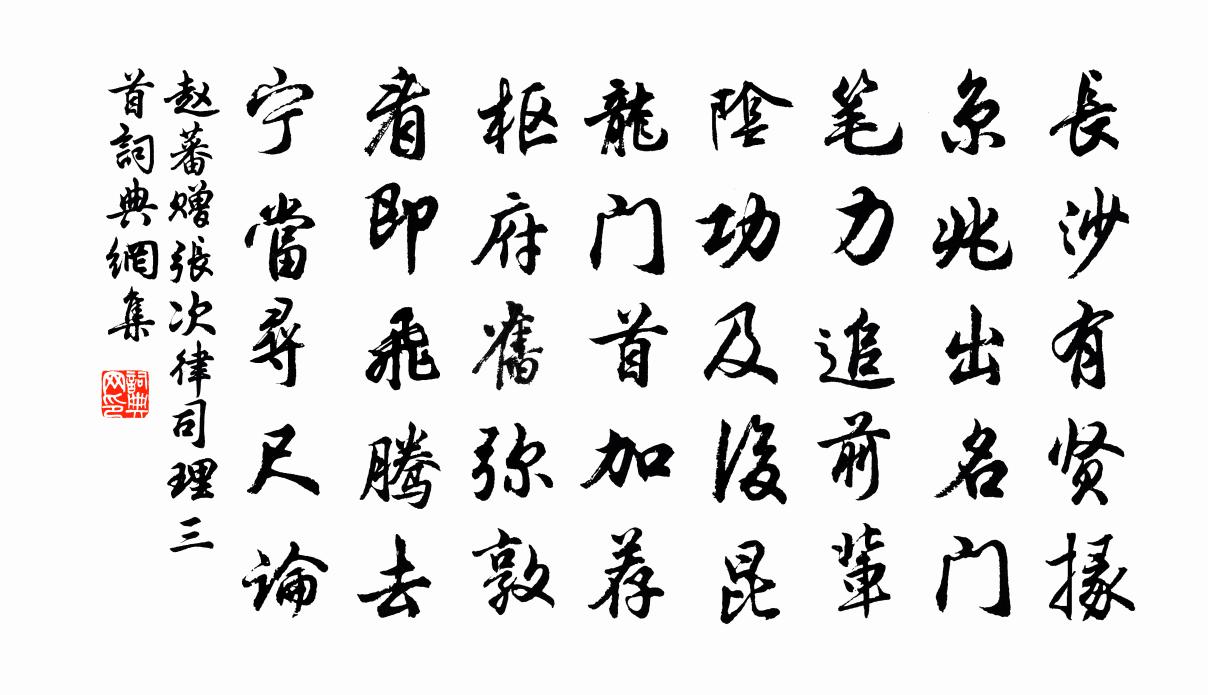 長沙有贤掾
京兆出名門
笔力追前輩
陰功及後昆
龍门首加荐
枢府舊弥敦
看即飛腾去
宁當尋尺論
赵蕃赠張次律司理三
首詞典網集
詞典网印